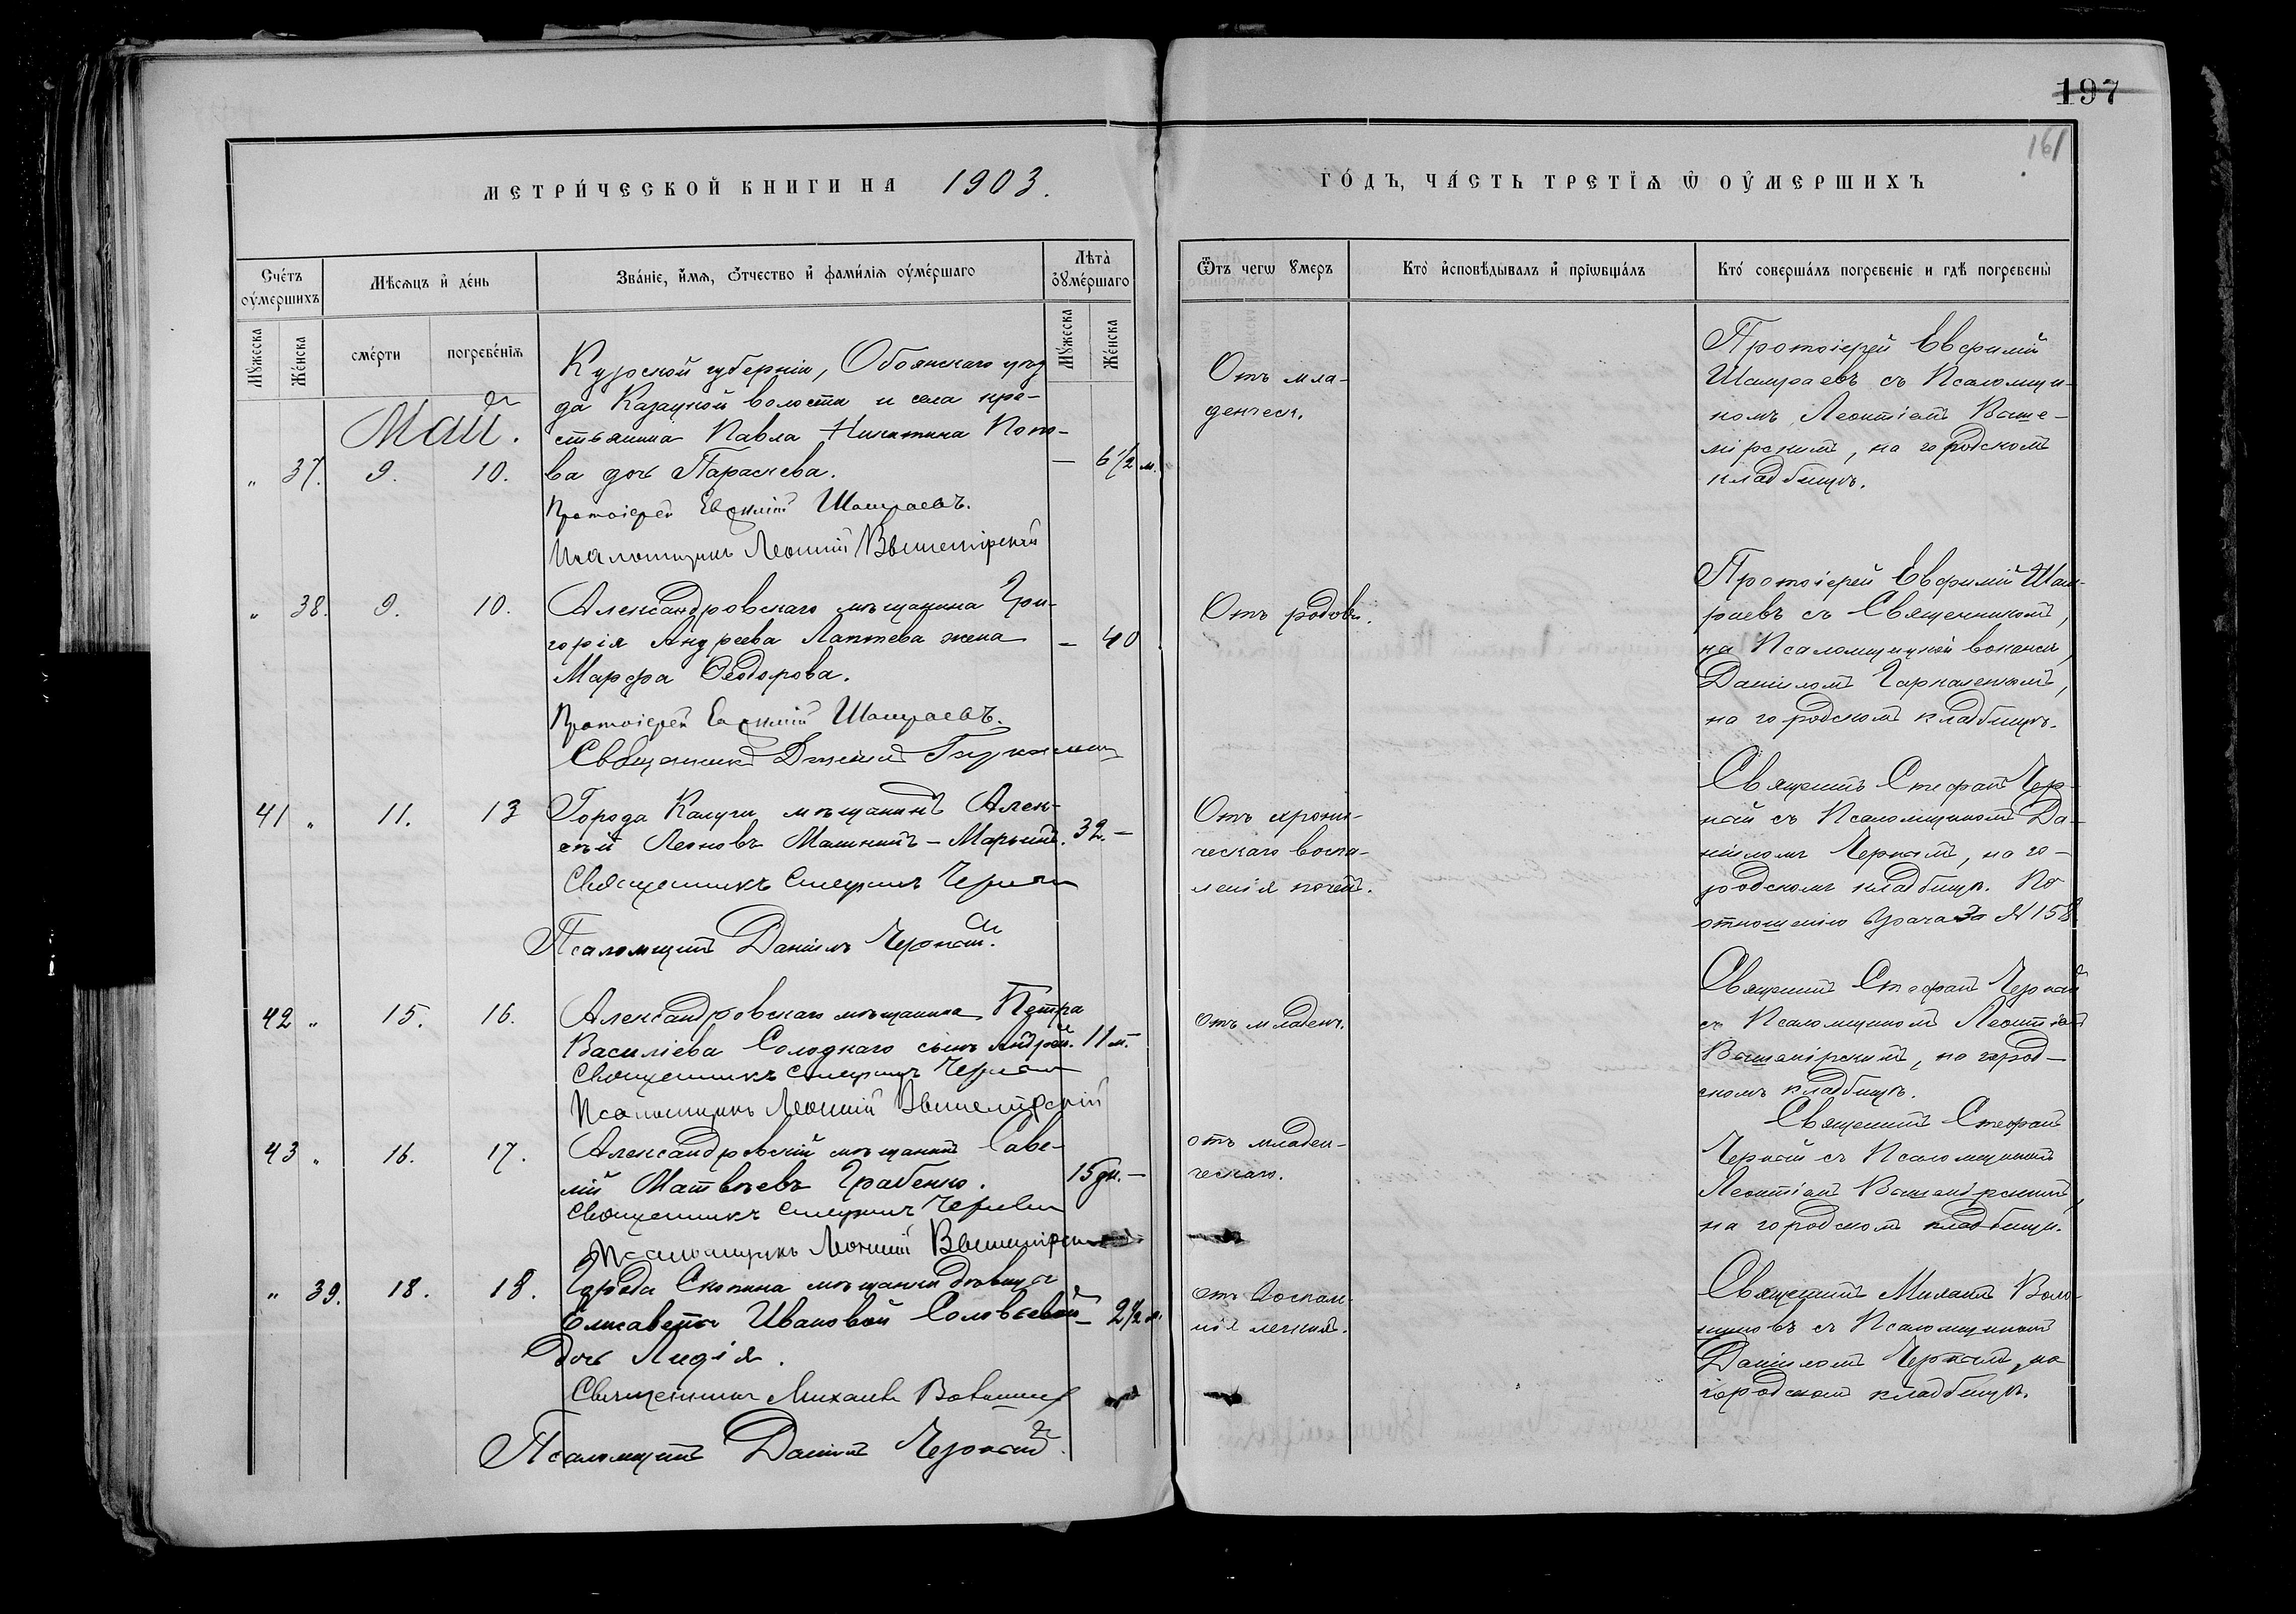 197
161
МЕТРИ́ЧЕСКОЙ КНИГИ НА 1903.
ГО́ДЪ, ЧА́СТЬ ТРЕТІѦ Ѡ ОУ҆МЕРШИХЪ
Сче́тъ оу҆ме́ршихъ
Мѣ́сѧцъ и҆ де́нь
Зва́ніе, и҆́мѧ, ѻ҆́тчество и҆ фами́лїѧ оу҆ме́ршаго
Лѣта̀ оу҆ме́ршаго
Ѿ чегѡ ᲂумеръ
Кто̀ и҆сповѣ́дывалъ и҆ прїѡбща́лъ
Кто́ соверша́лъ погребе́нїе и гдѣ̀ погребены̀
Мꙋ́жеска
Же́нска
сме́рти
погребе́нїѧ
Мꙋ́жеска
Же́нска
Май.
Курской губерніи, Обоянскаго уѣз
да Казацкой волости и села кре-
стьянина Павла Никитина Попо-
" 37. 9. 10. ва дочь Параскева. — 6½ м.
Протоіерей Евфимій Шамраевъ.
Псаломщикъ Леонтій Вышемірскій
Отъ мла-
денческ.
Протоіерей Евфимій
Шамраевъ съ Псаломщи-
комъ Леонтіемъ Выше-
мірскимъ, на городскомъ
кладбищѣ.
" 38. 9. 10. Александровскаго мѣщанина Гри-
горія Андреева Лаптева жена — 40
Марфа Ѳеодорова.
Протоіерей Евфимій Шамраевъ.
Священникъ Даніилъ
Отъ родовъ.
Протоіерей Евфимій Шам-
раевъ съ Священникомъ,
на Псаломщицкой вакансіи,
Даніиломъ
на городскомъ кладбищѣ.
41 " 11. 13 Города Калуги мѣщанинъ Алек-
сѣй Леоновъ Машкинъ – Марьинъ. 32. —
Священникъ Стефанъ Черкай
Псаломщикъ Даніилъ Черкай.
Отъ хрони-
ческаго воспа-
ленія почекъ.
Священникъ Стефанъ Чер-
кай съ Псаломщикомъ Да-
ніиломъ Черкаемъ, на го-
родскомъ кладбищѣ. По
отношенію врача за № 158
42 " 15. 16. Александровскаго мѣщанина Петра
Василіева Солодкаго сынъ Андрей. 11 м. —
Священникъ Стефанъ Черкай
Псаломщикъ Леонтій Вышемірскій
отъ младенч.
Священникъ Стефанъ Черкай
съ Псаломщикомъ Леонтіемъ
Вышемірскимъ, на город-
скомъ кладбищѣ.
43 " 16. 17. Александровскій мѣщанинъ Саве-
лій Матвѣевъ Грабенко. 15 дн. —
Священникъ Стефанъ Черкай
Псаломщикъ Леонтій Вышемірскій
отъ младен-
ческаго.
Священникъ Стефанъ
Черкай съ Псаломщикомъ
Леонтіемъ Вышемірскимъ,
на городскомъ кладбищѣ.
" 39. 18. 18. Города Скопина мѣщанки дѣвицы
Елисаветы Ивановой Соловьевой — 2½ м.
дочь Лидія.
Священникъ Михаилъ
Псаломщикъ Даніилъ Черкай.
отъ воспале-
нія легкихъ.
Священникъ Михаилъ
съ Псаломщикомъ
Даніиломъ Черкаемъ, на
городскомъ кладбищѣ.